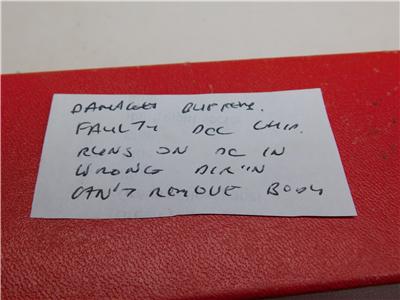 DAMAGED BUFFERS.
FAULTY DCC CHIP.
RUNS ON DC IN
WRONG DIR'IN
CAN'T REMOVE BODY